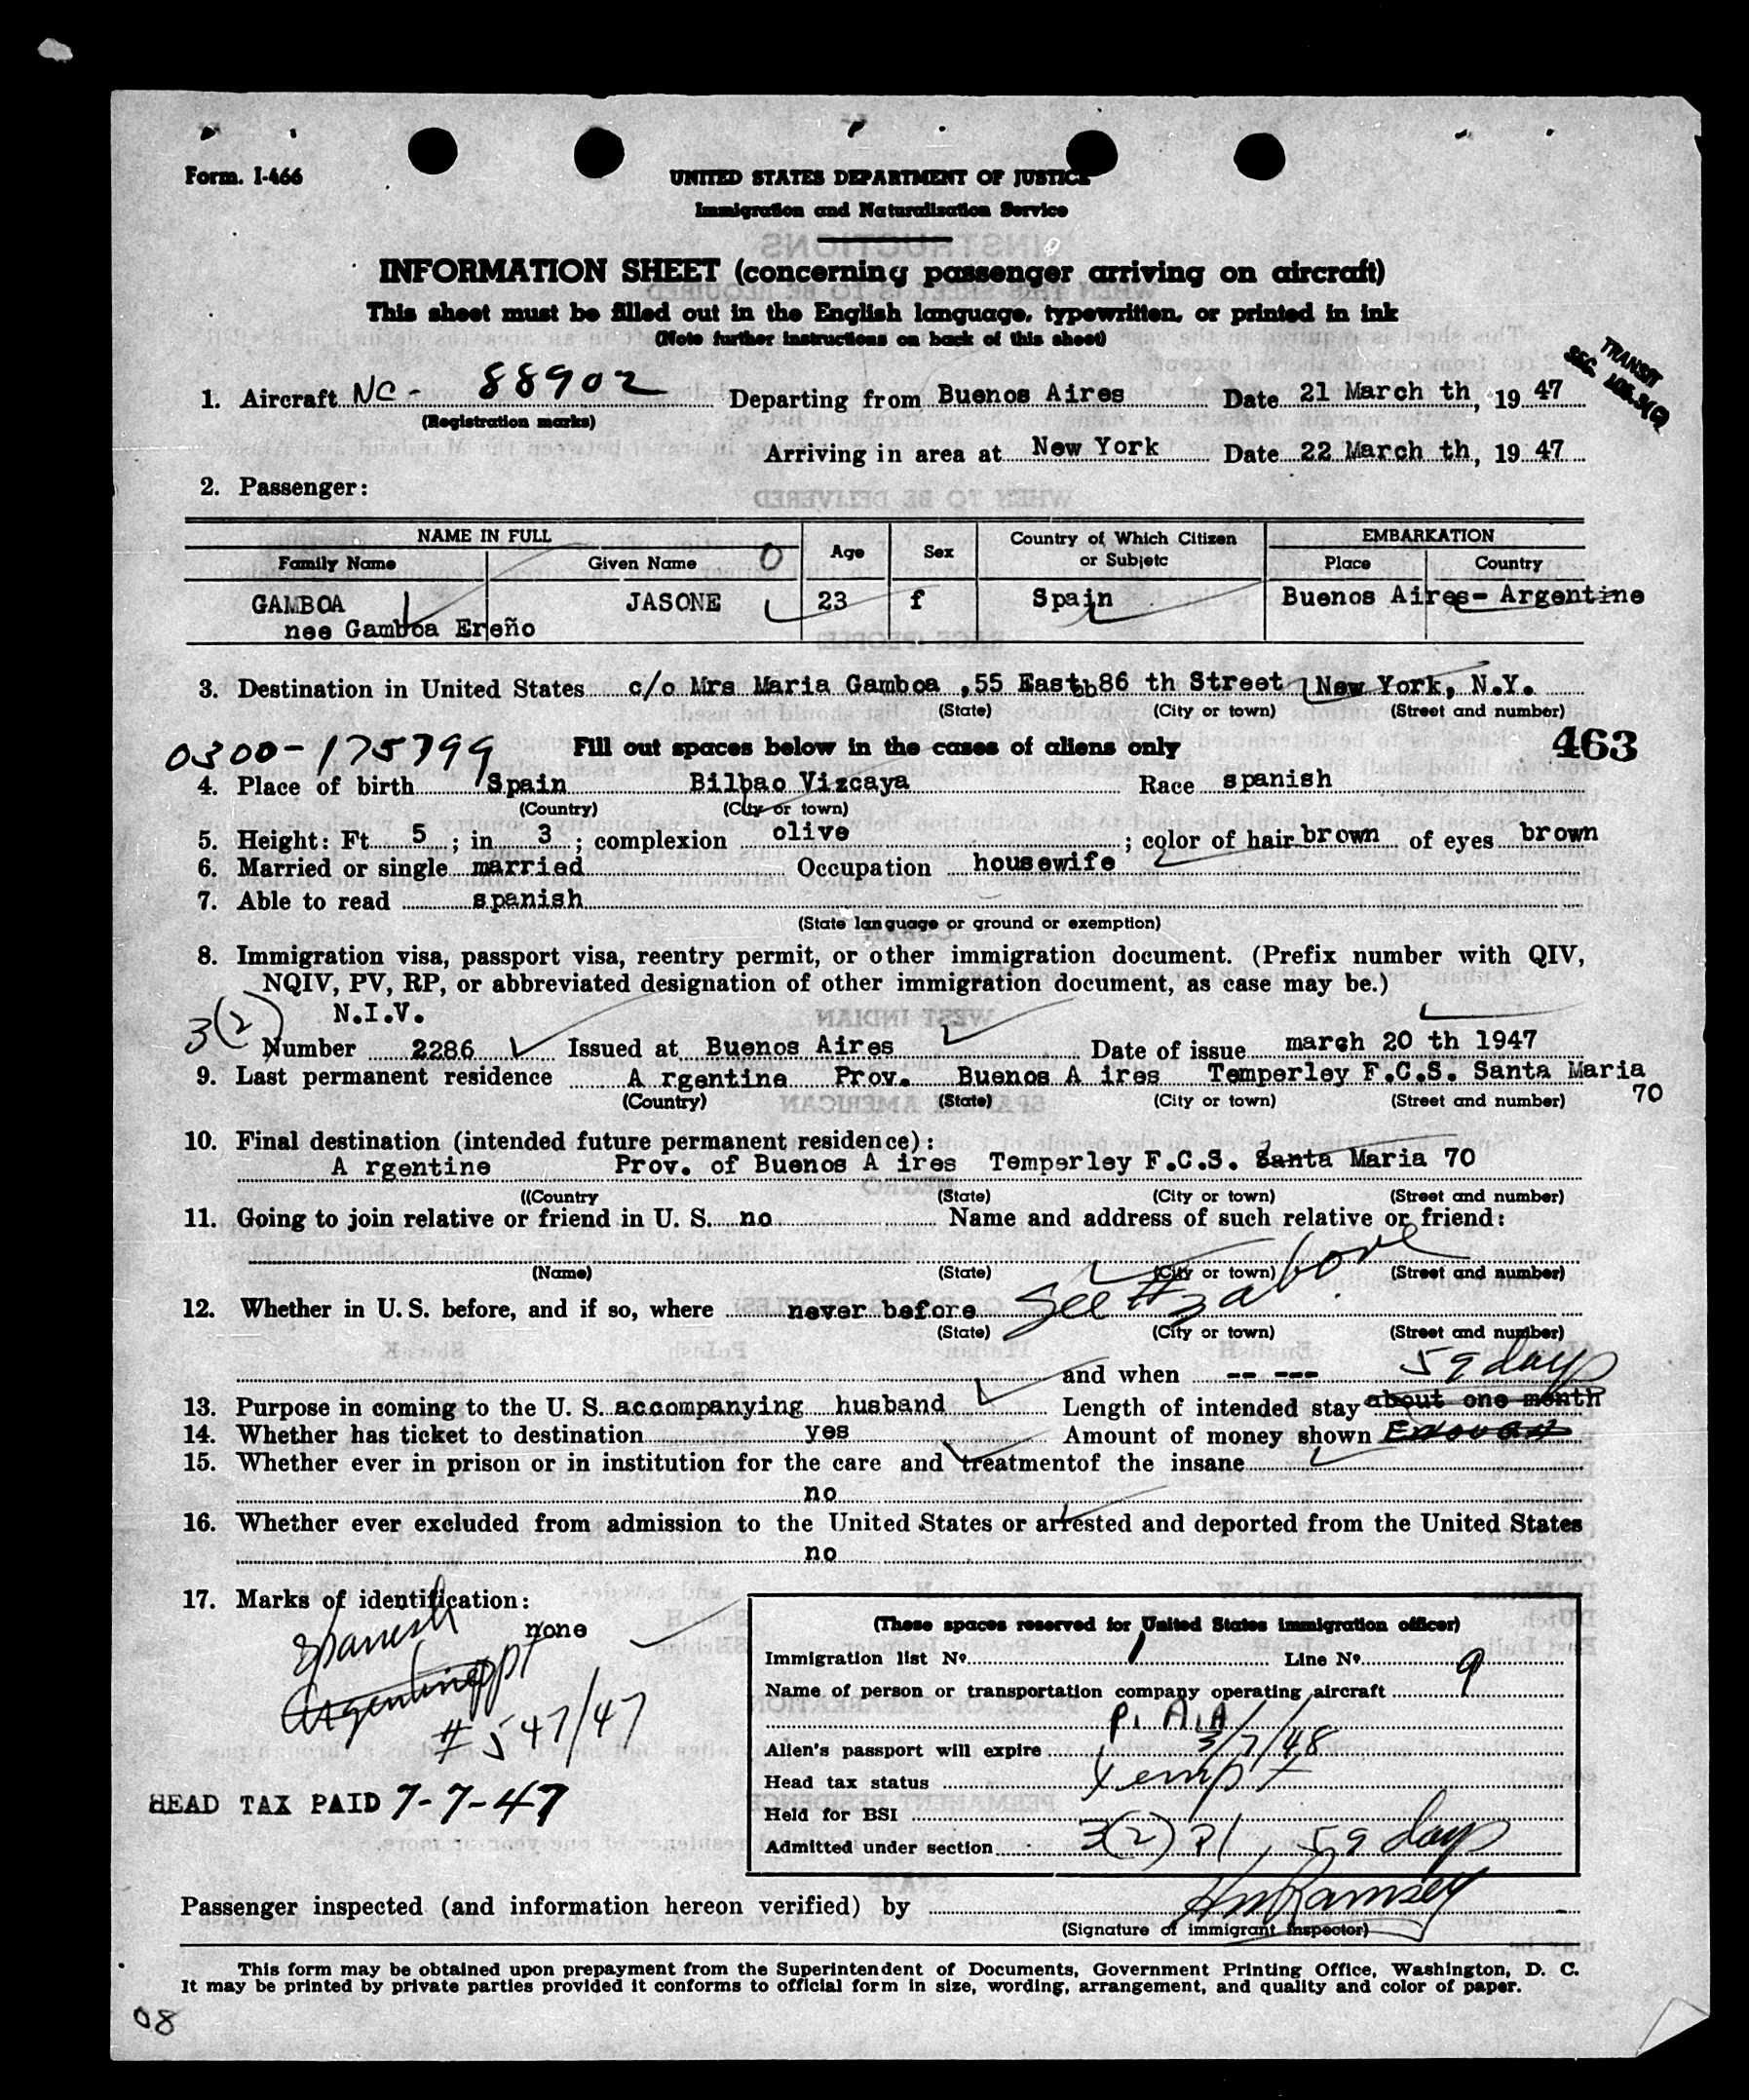 Form. I-466
UNITED STATES DEPARTMENT OF JUSTICE
Immigration and Naturalization Service
INFORMATION SHEET (concerning passenger arriving on aircraft)
This sheet must be filled out in the English language, typewritten, or printed in ink
(Note further instructions on back of this sheet)
TRANSIT
SEC.
1. Aircraft NC - 88902 Departing from Buenos Aires Date 21 March th, 19 47
(Registration marks)
Arriving in area at New York Date 22 March th, 19 47
2. Passenger:
NAME IN FULL Age Sex Country of Which Citizen or Subjetc EMBARKATION
Family Name Given Name 0 Place Country
GAMBOA JASONE 23 f Spain Buenos Aires- Argentine
nee Gamboa Ereño
3. Destination in United States c/o Mrs Maria Gamboa ,55 East 86 th Street New York, N.Y.
(State) (City or town) (Street and number)
0300-175799 Fill out spaces below in the cases of aliens only 463
4. Place of birth Spain Bilbao Vizcaya Race spanish
(Country) (City or town)
5. Height: Ft. 5 ; in 3 ; complexion olive ; color of hair brown of eyes brown
6. Married or single married Occupation housewife
7. Able to read spanish
(State language or ground or exemption)
8. Immigration visa, passport visa, reentry permit, or other immigration document. (Prefix number with QIV,
NQIV, PV, RP, or abbreviated designation of other immigration document, as case may be.)
3(2) N.I.V.
Number 2286 Issued at Buenos Aires Date of issue march 20 th 1947
9. Last permanent residence A rgentine Prov. Buenos A ires Temperley F.C.S. Santa Maria
70
(Country) (State) (City or town) (Street and number)
10. Final destination (intended future permanent residence):
A rgentine Prov. of Buenos A ires Temperley F.C.S. Santa Maria 70
((Country (State) (City or town) (Street and number)
11. Going to join relative or friend in U. S. no Name and address of such relative or friend:
(Name) (State) (City or town) (Street and number)
See #3 above
12. Whether in U. S. before, and if so, where never before
(State) (City or town) (Street and number)
and when -- --- 59 days
13. Purpose in coming to the U. S. accompanying husband Length of intended stay about one month
14. Whether has ticket to destination yes Amount of money shown
15. Whether ever in prison or in institution for the care and treatmentof the insane
no
16. Whether ever excluded from admission to the United States or arrested and deported from the United States
no
17. Marks of identification:
none
Spanish
Argentine ppt
# 547/47
HEAD TAX PAID 7-7-47
(These spaces reserved for United States immigration officer)
Immigration list Nº 1 Line Nº 9
Name of person or transportation company operating aircraft
P. A. A
Alien's passport will expire 3/7/48
Head tax status Exempt
Held for BSI
Admitted under section 3(2) 59 days
Passenger inspected (and information hereon verified) by HmRamsey
(Signature of immigrant inspector)
This form may be obtained upon prepayment from the Superintendent of Documents, Government Printing Office, Washington, D. C.
It may be printed by private parties provided it conforms to official form in size, wording, arrangement, and quality and color of paper.
08